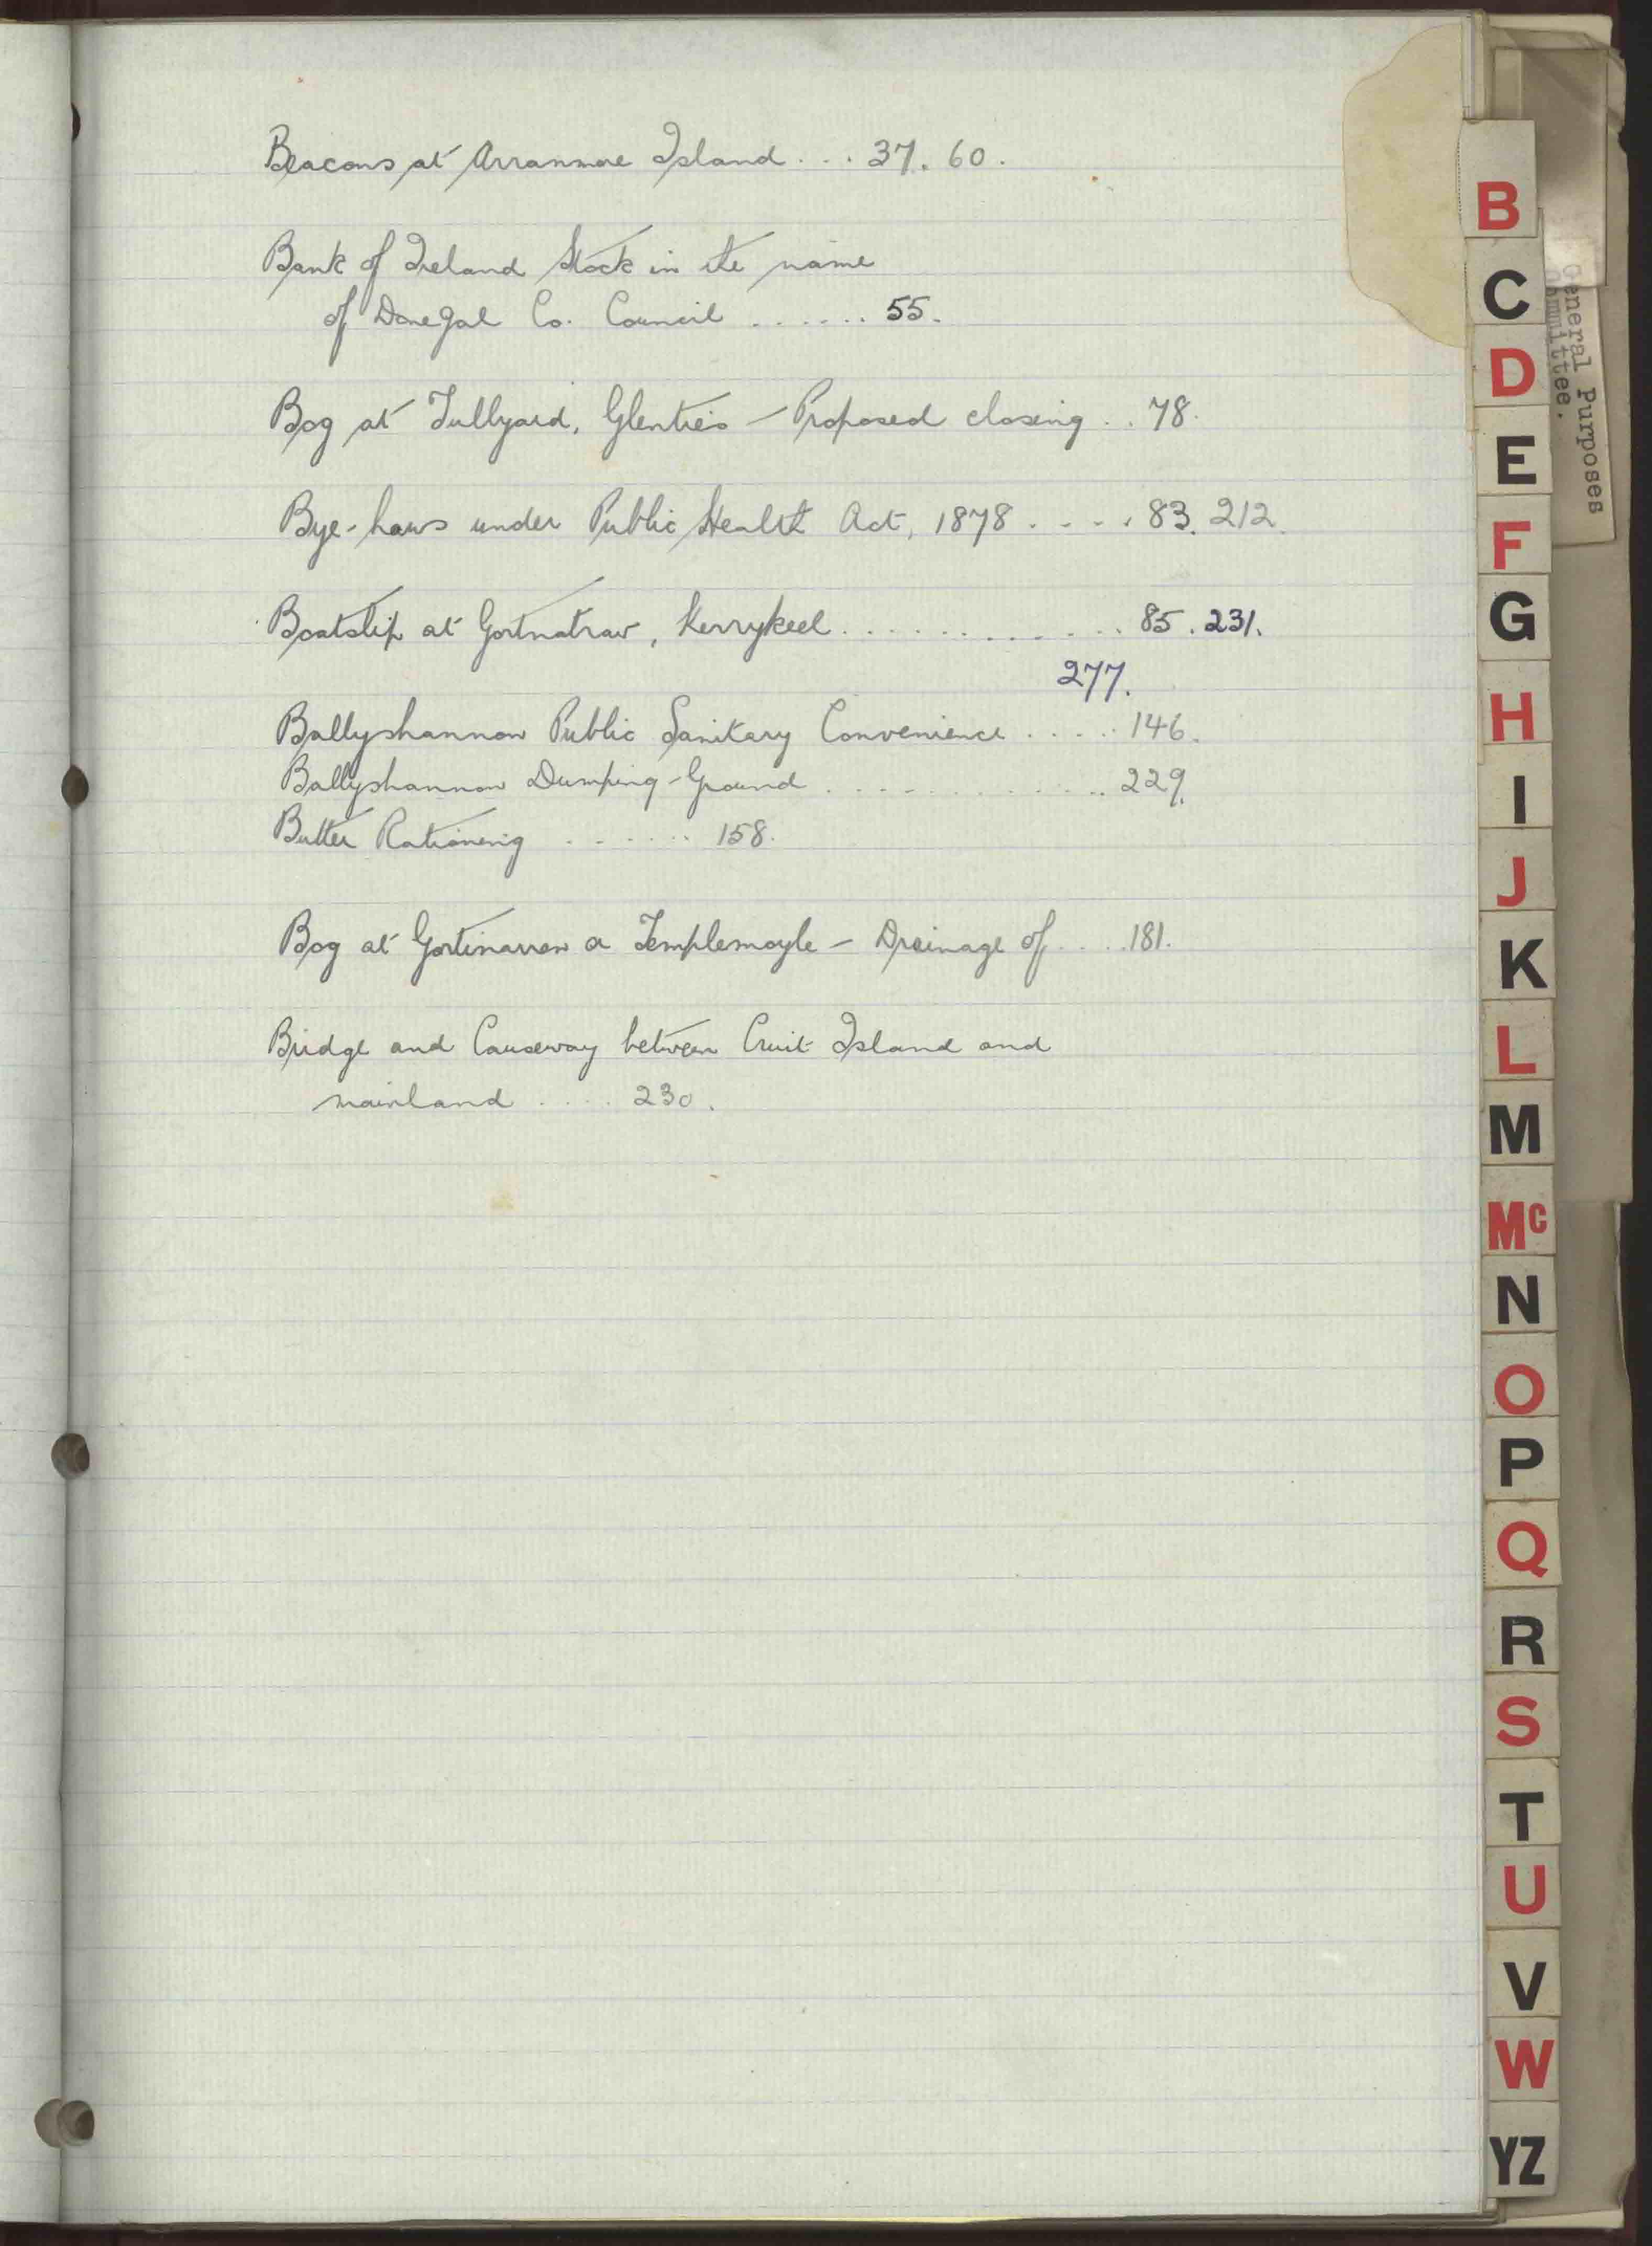 Beacons at Arranmore Island ... 37. 60.
Bank of Ireland Stock in the name
of Donegal Co. Council ....... 55.
Bog at Tullyard, Glenties - Proposed closing .. 78.
Bye-Laws under Public Health Act, 1878 ..... 83. 212.
Boatslip at Gortnatraw, Kerrykeel .............. 85. 231.
277.
Ballyshannon Public Sanitary Convenience ..... 146.
Ballyshannon Dumping-Ground .............. 229.
Butter Rationing ....... 158.
Bog at Gortinarren a Templemoyle - Drainage of .... 181.
Bridge and Causeway between Cruit Island and
mainland .... 230.
B
C
D
E
F
G
H
I
J
K
L
M
Mc
N
O
P
Q
R
S
T
U
V
W
YZ
General Purposes
Committee.